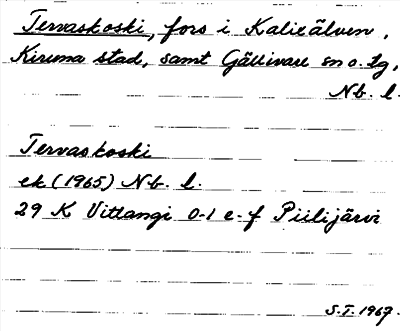 Tervaskoski, fors i Kalixälven,
Kiruna stad, samt Gällivare sn o. lg,
Nb. l.
Tervaskoski
ek (1965) Nb. l.
29 K Vittangi 0-1 e-f Piilijärvi
S.T. 1967.